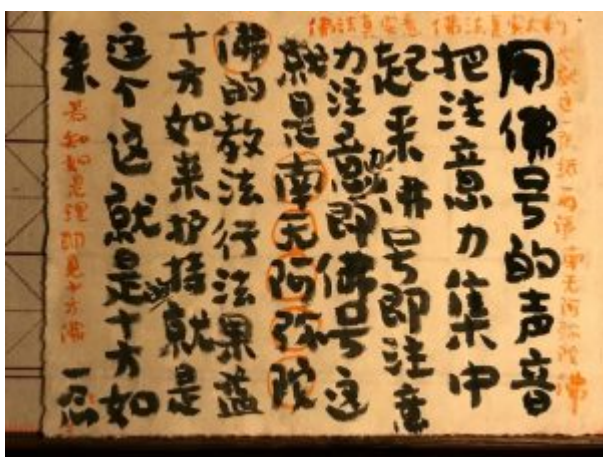 佛法真实意 佛法真实大利
用佛号的声音
把注意力集中
起来佛号即注意
力注意即佛号这
就是南无阿弥陀
佛的教法行法果益
十方如来护持就是
这个这就是十方如
来
若知如是理即见十方佛
一忍